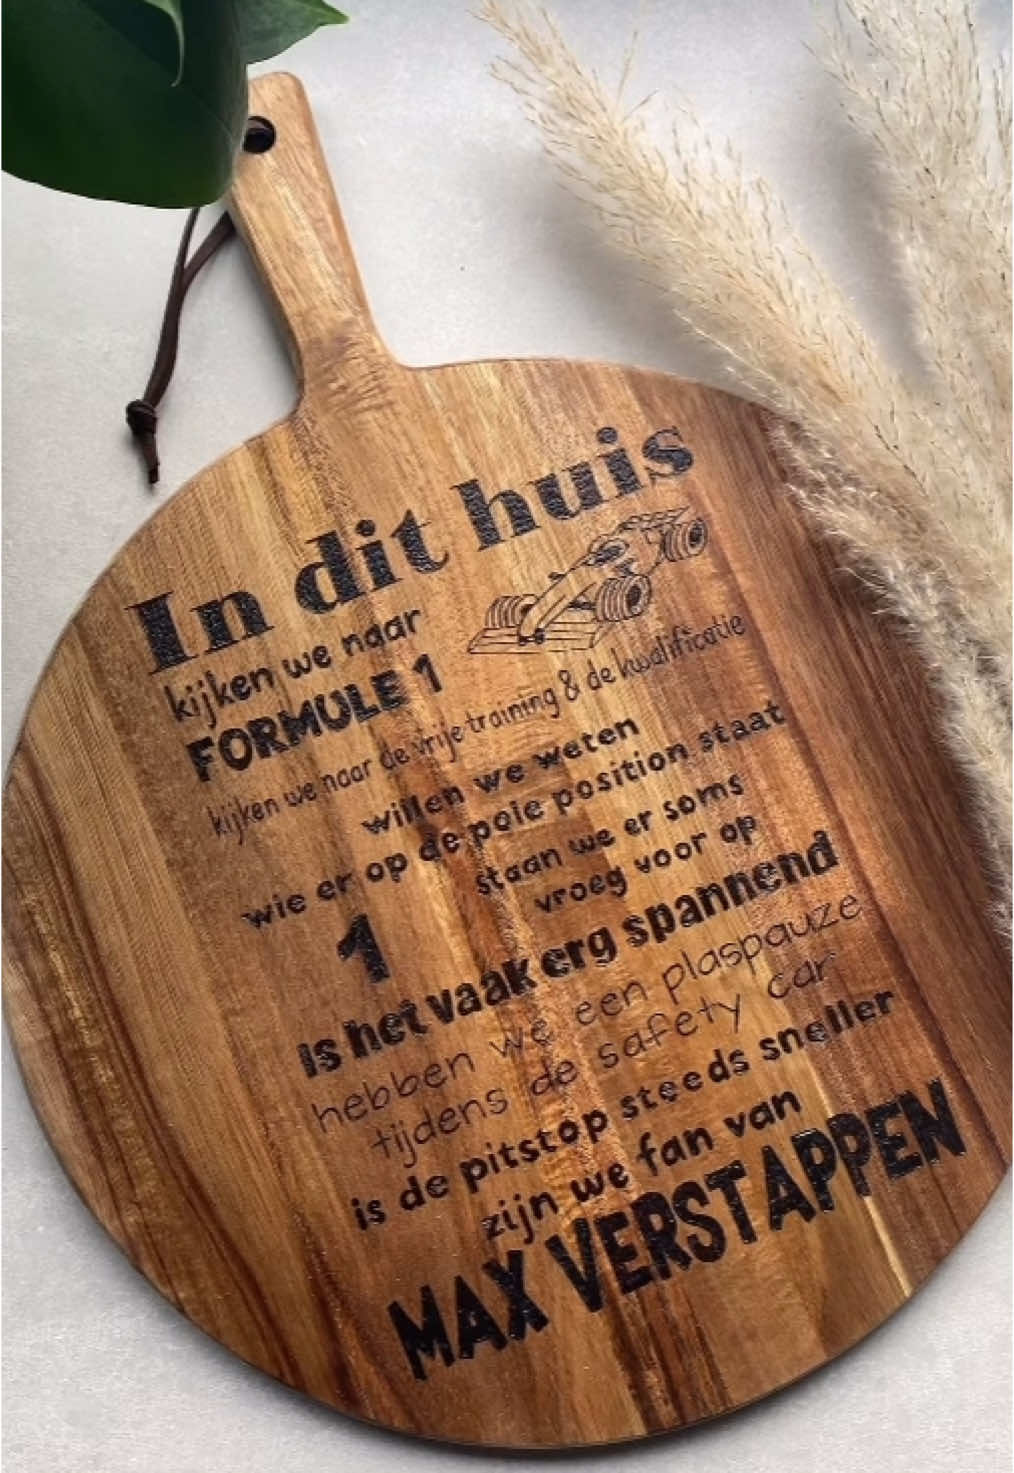 In dit huis
kijken we naar
FORMULE 1
kijken we naar de vrije training & de kwalificatie
willen we weten
wie er op de pole position staat
1
staan we er soms
vroeg voor op
is het vaak erg spannend
hebben we een plaspauze
tijdens de safety car
is de pitstop steeds sneller
zijn we fan van
MAX VERSTAPPEN